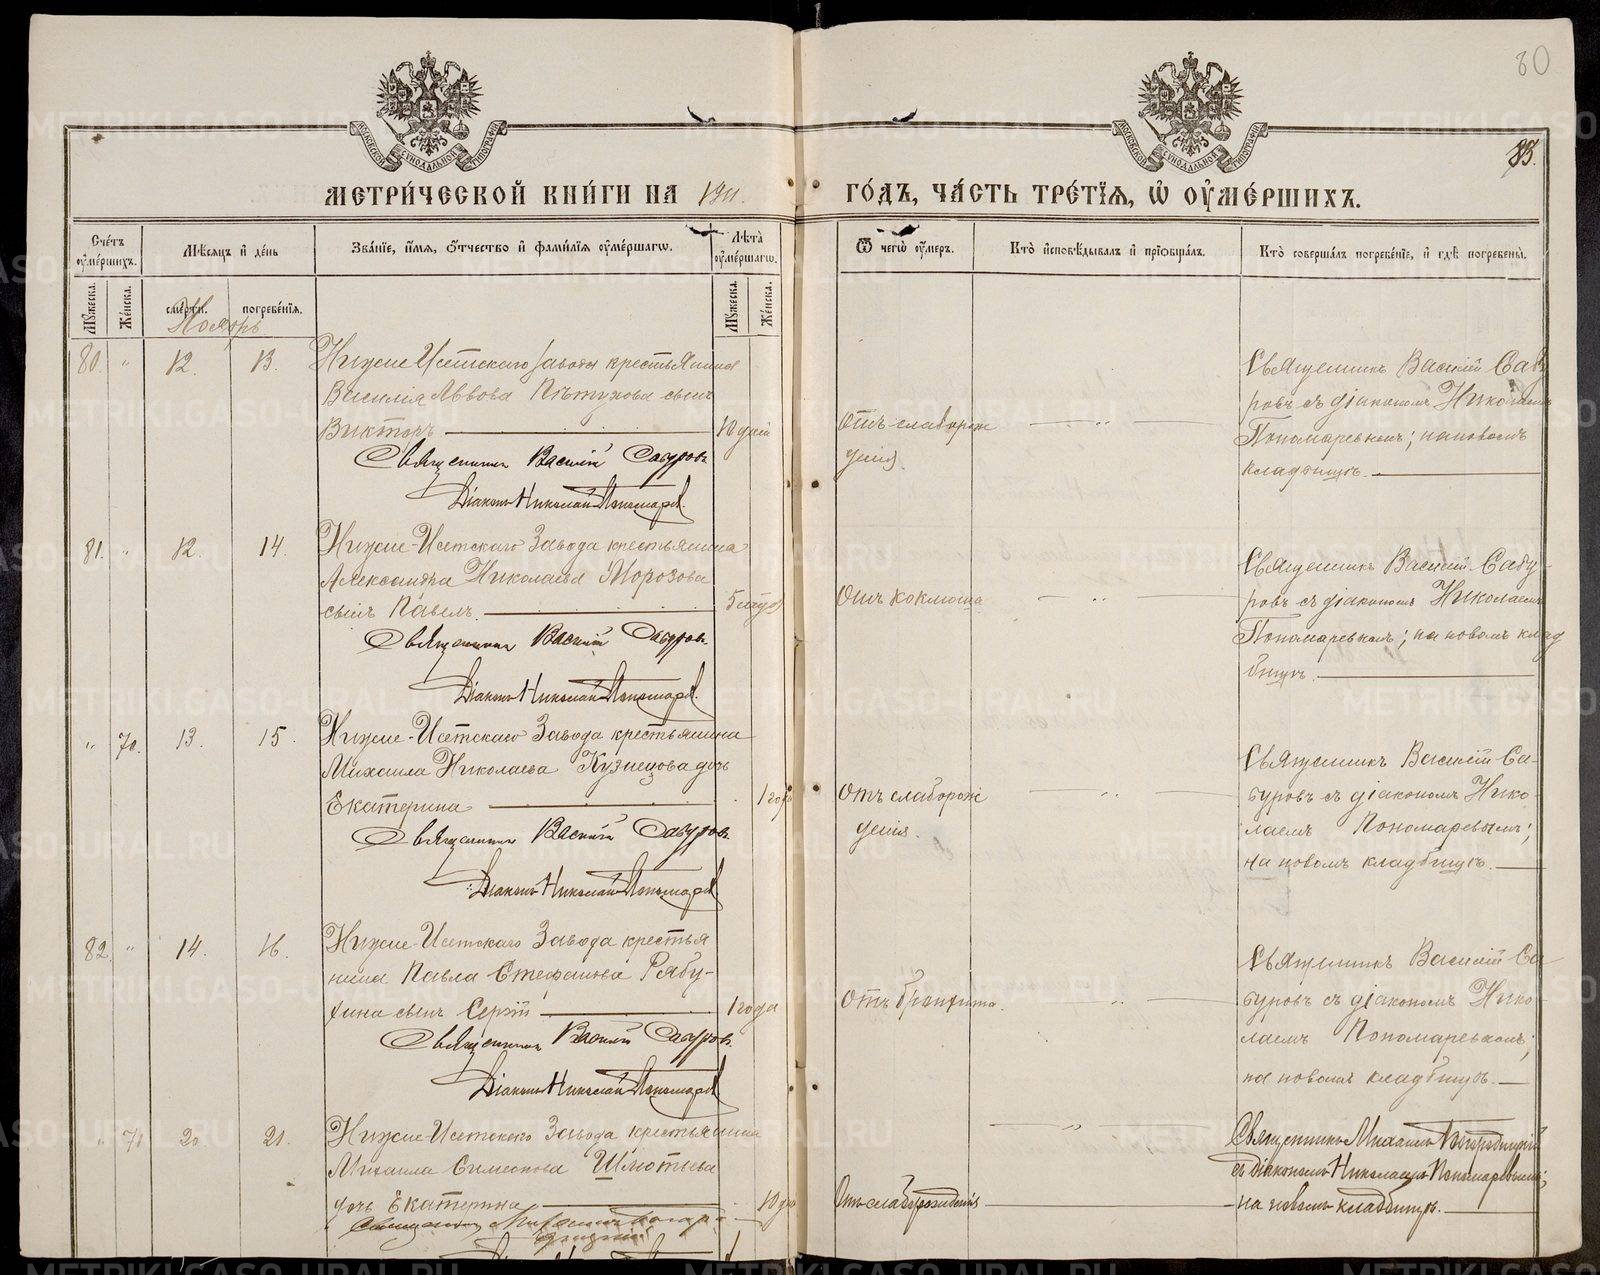 80
83.
МЕТРИ́ЧЕСКОЙ КНИ́ГИ НА 1911. ГО́ДЪ, ЧА́СТЬ ТРЕ́ТЇѦ, Ѡ҆ ОУ҆МЕ́РШИХЪ.
Сче́тъ оу҆ме́ршихъ.
Мѣ́сяцъ и҆ де́нь
Зва́нїе, и҆́мѧ, ѻ҆́тчество и҆ фамі́лїѧ оу҆ме́ршагѡ.
Лѣ́та оу҆ме́ршагѡ.
Ѿ чегѡ̀ оу҆́меръ.
Кто̀ и҆сповѣ́дывалъ и҆ прїѡбща́лъ.
Кто̀ соверша́лъ погребе́нїе, и҆ гдѣ̀ погребены̀.
Мꙋ́жеска.
Же́нска.
сме́рти.
погребе́нїѧ.
Мꙋ́жеска.
Же́нска.
Ноябрь
80. " 12. 13. Нижне Исетскаго завода крестьянина
Василія Аввова Пѣтухова сынъ
Викторъ 10 дней
Священникъ Василій Сабуровъ
Діаконъ Николай Пономарев.
отъ слаборож
денія.
"
Священникъ Василій Сабу
ровъ съ діакономъ Николаемъ
Пономаревымъ; на новомъ
кладбищѣ.
81. " 12. 14. Нижне-Исетскаго Завода крестьянина
Александра Николаева Морозова
сынъ Павелъ.
Священникъ Василій Сабуровъ
Діаконъ Николай Пономарев.
Отъ коклюша
"
Священникъ Василій Сабу
ровъ съ діакономъ Николаемъ
Пономаревымъ; на новомъ клад
бищѣ.
" 70. 13. 15. Нижне-Исетскаго Завода крестьянина
Михаила Николаева Кузнецова дочь
Екатерина 1 года
Священникъ Василій Сабуровъ
Діаконъ Николай Пономарев
Отъ слаборож
денія.
"
Священникъ Василій Са-
буровъ съ діакономъ Нико-
лаемъ Пономаревымъ;
на новомъ кладбищѣ.
82. " 14. 16. Нижне-Исетскаго Завода крестья
нина Павла Стефанова Рябу-
хина сынъ Сергій 1 года
Священникъ Василій Сабуровъ.
Діаконъ Николай Пономарев
Отъ бронхита.
"
Священникъ Василій Са
буровъ съ діакономъ Нико-
лаемъ Пономаревымъ;
на новомъ кладбищѣ.
" 71 20. 21. Нижне-Исетскаго Завода крестьянина
Михаила Симеонова
дочь Екатерина
Священникъ Михаилъ
Отъ слаборожденія
"
Священникъ Михаилъ
съ діакономъ Николаемъ Пономаревымъ;
на новомъ кладбищѣ.
METRIKI.GASO-URAL.RU